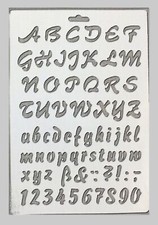 ABCDEF
GHIJKLM
NOPQRS
TUVWXYZ
abcdefghijkl
mnopqrstuvw
xyz ß&-?!:;
1234567890